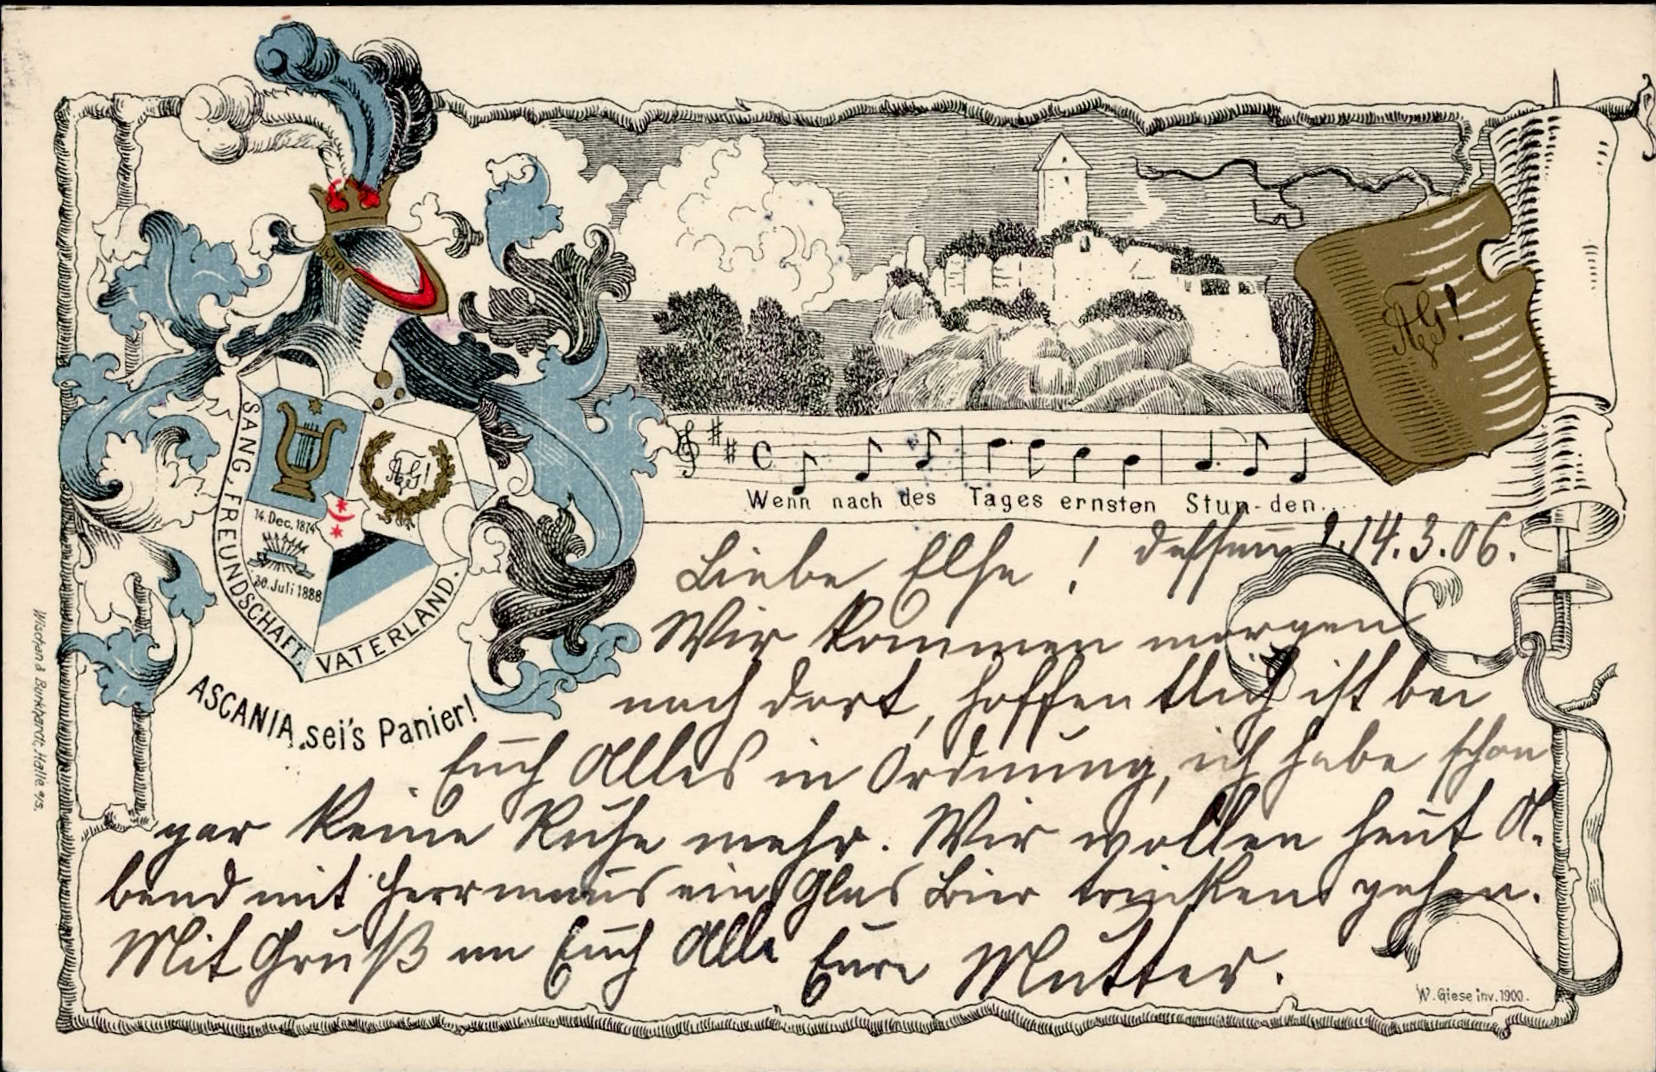 SANG, FREUNDSCHAFT, VATERLAND.
AG!
14. Dec. 1874
30. Juli 1888
ASCANIA sei's Panier!
AG!
Wenn nach des Tages ernsten Stun-den...
Liebe Else! Dessau, 14.3.06.
Wir kommen morgen
nach dort, hoffentlich ist bei
Euch Alles in Ordnung, ich habe schon
gar keine Ruhe mehr. Wir wollen heut A-
bend mit Herrmanns ein Glas Bier trinken gehen.
Mit Gruß an Euch Alle Eure Mutter.
W. Giese inv. 1900.
Wischan & Burkhardt, Halle a/S.